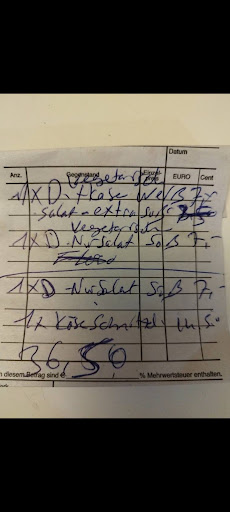 Datum
Anz. Gegenstand Einzel-preis EURO Cent
Vegetarisch
1XD - +Käse Weiß 7,-
Salat - extra Soß
Vegetarisch
1XD - Nur Salat Soß 7,-
1XD - Nur Salat Soß 7,-
1x Käse Schnitzel
36,50
n diesem Betrag sind € % Mehrwertsteuer enthalten.